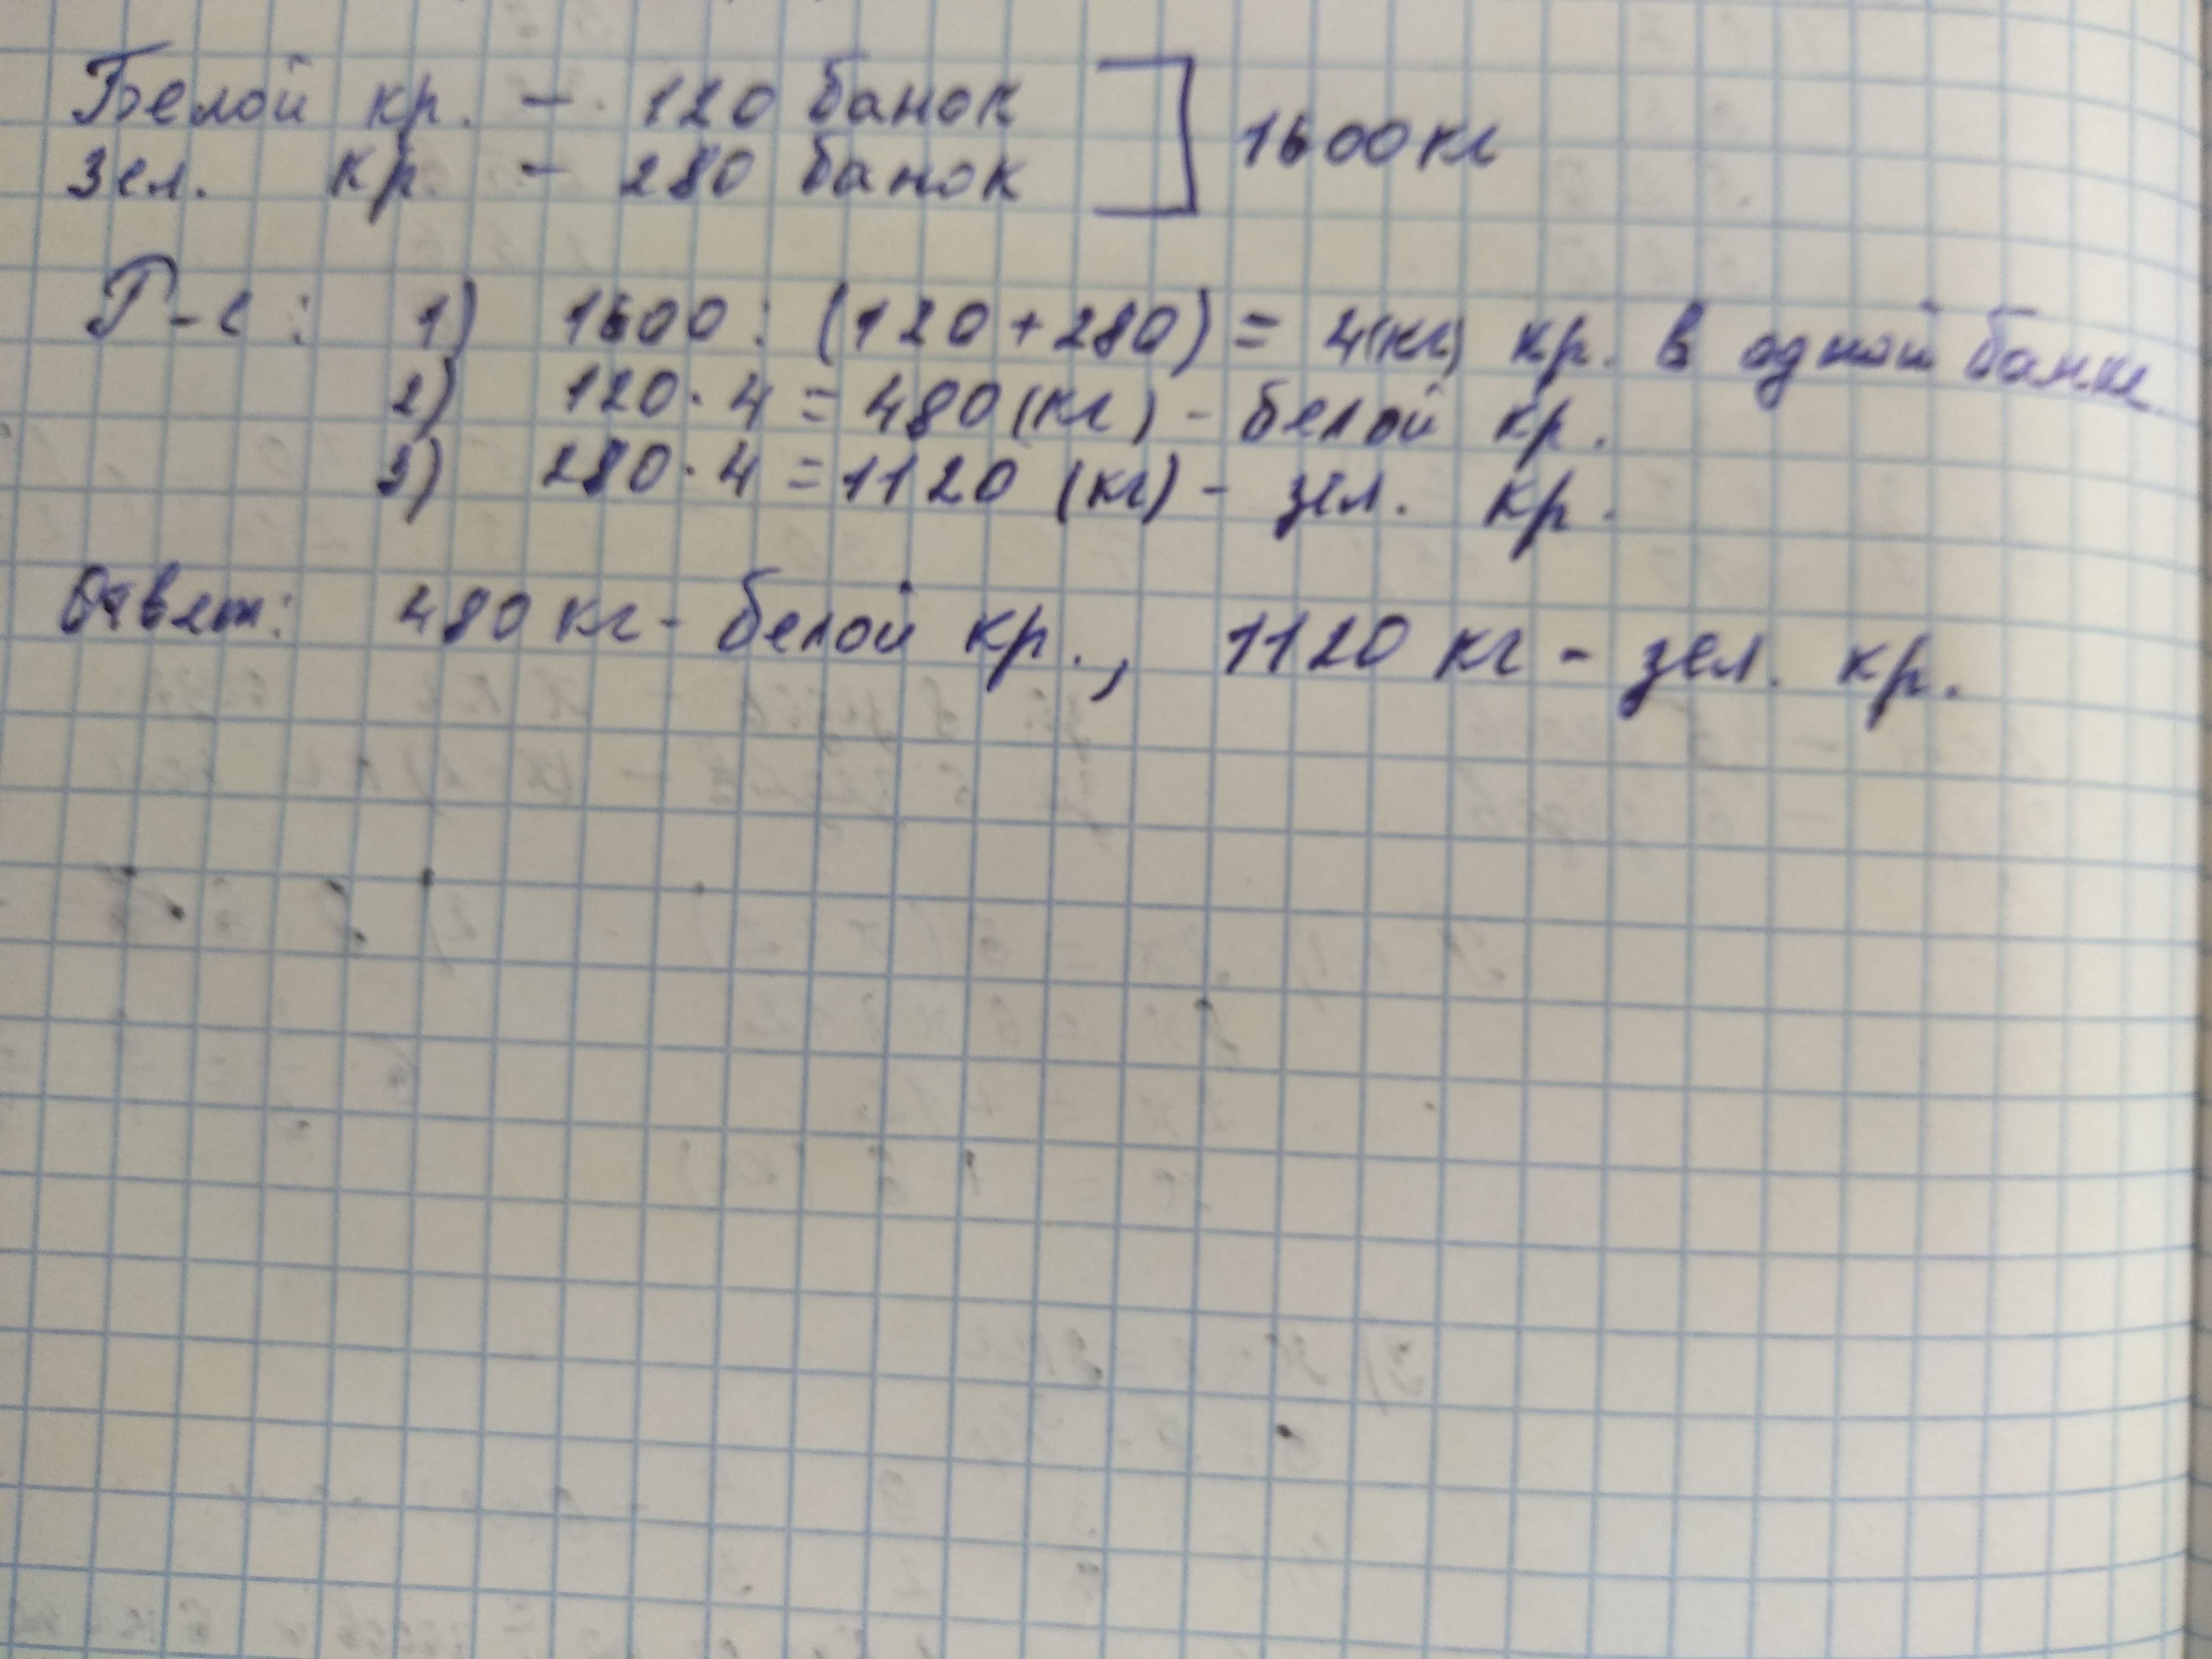 Белой кр. - 120 банок
зел. кр. - 280 банок
1600 кг
Р-е: 1) 1600 : (120 + 280) = 4(кг) кр. в одной банке
2) 120 · 4 = 480 (кг) - белой кр.
3) 280 · 4 = 1120 (кг) - зел. кр.
Ответ: 480 кг - белой кр., 1120 кг - зел. кр.